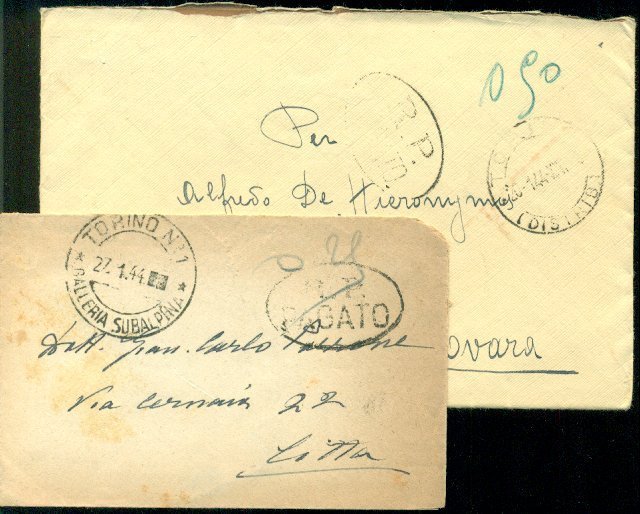 0 90
R.P.
Per
Alfredo De Hieronymis
(DISTRIB)
ovara
TORINO Nº 1
27.1.44
GALLERIA SUBALPINA
PAGATO
Dott. Gian. Carlo
Via Cernaia 22
Città